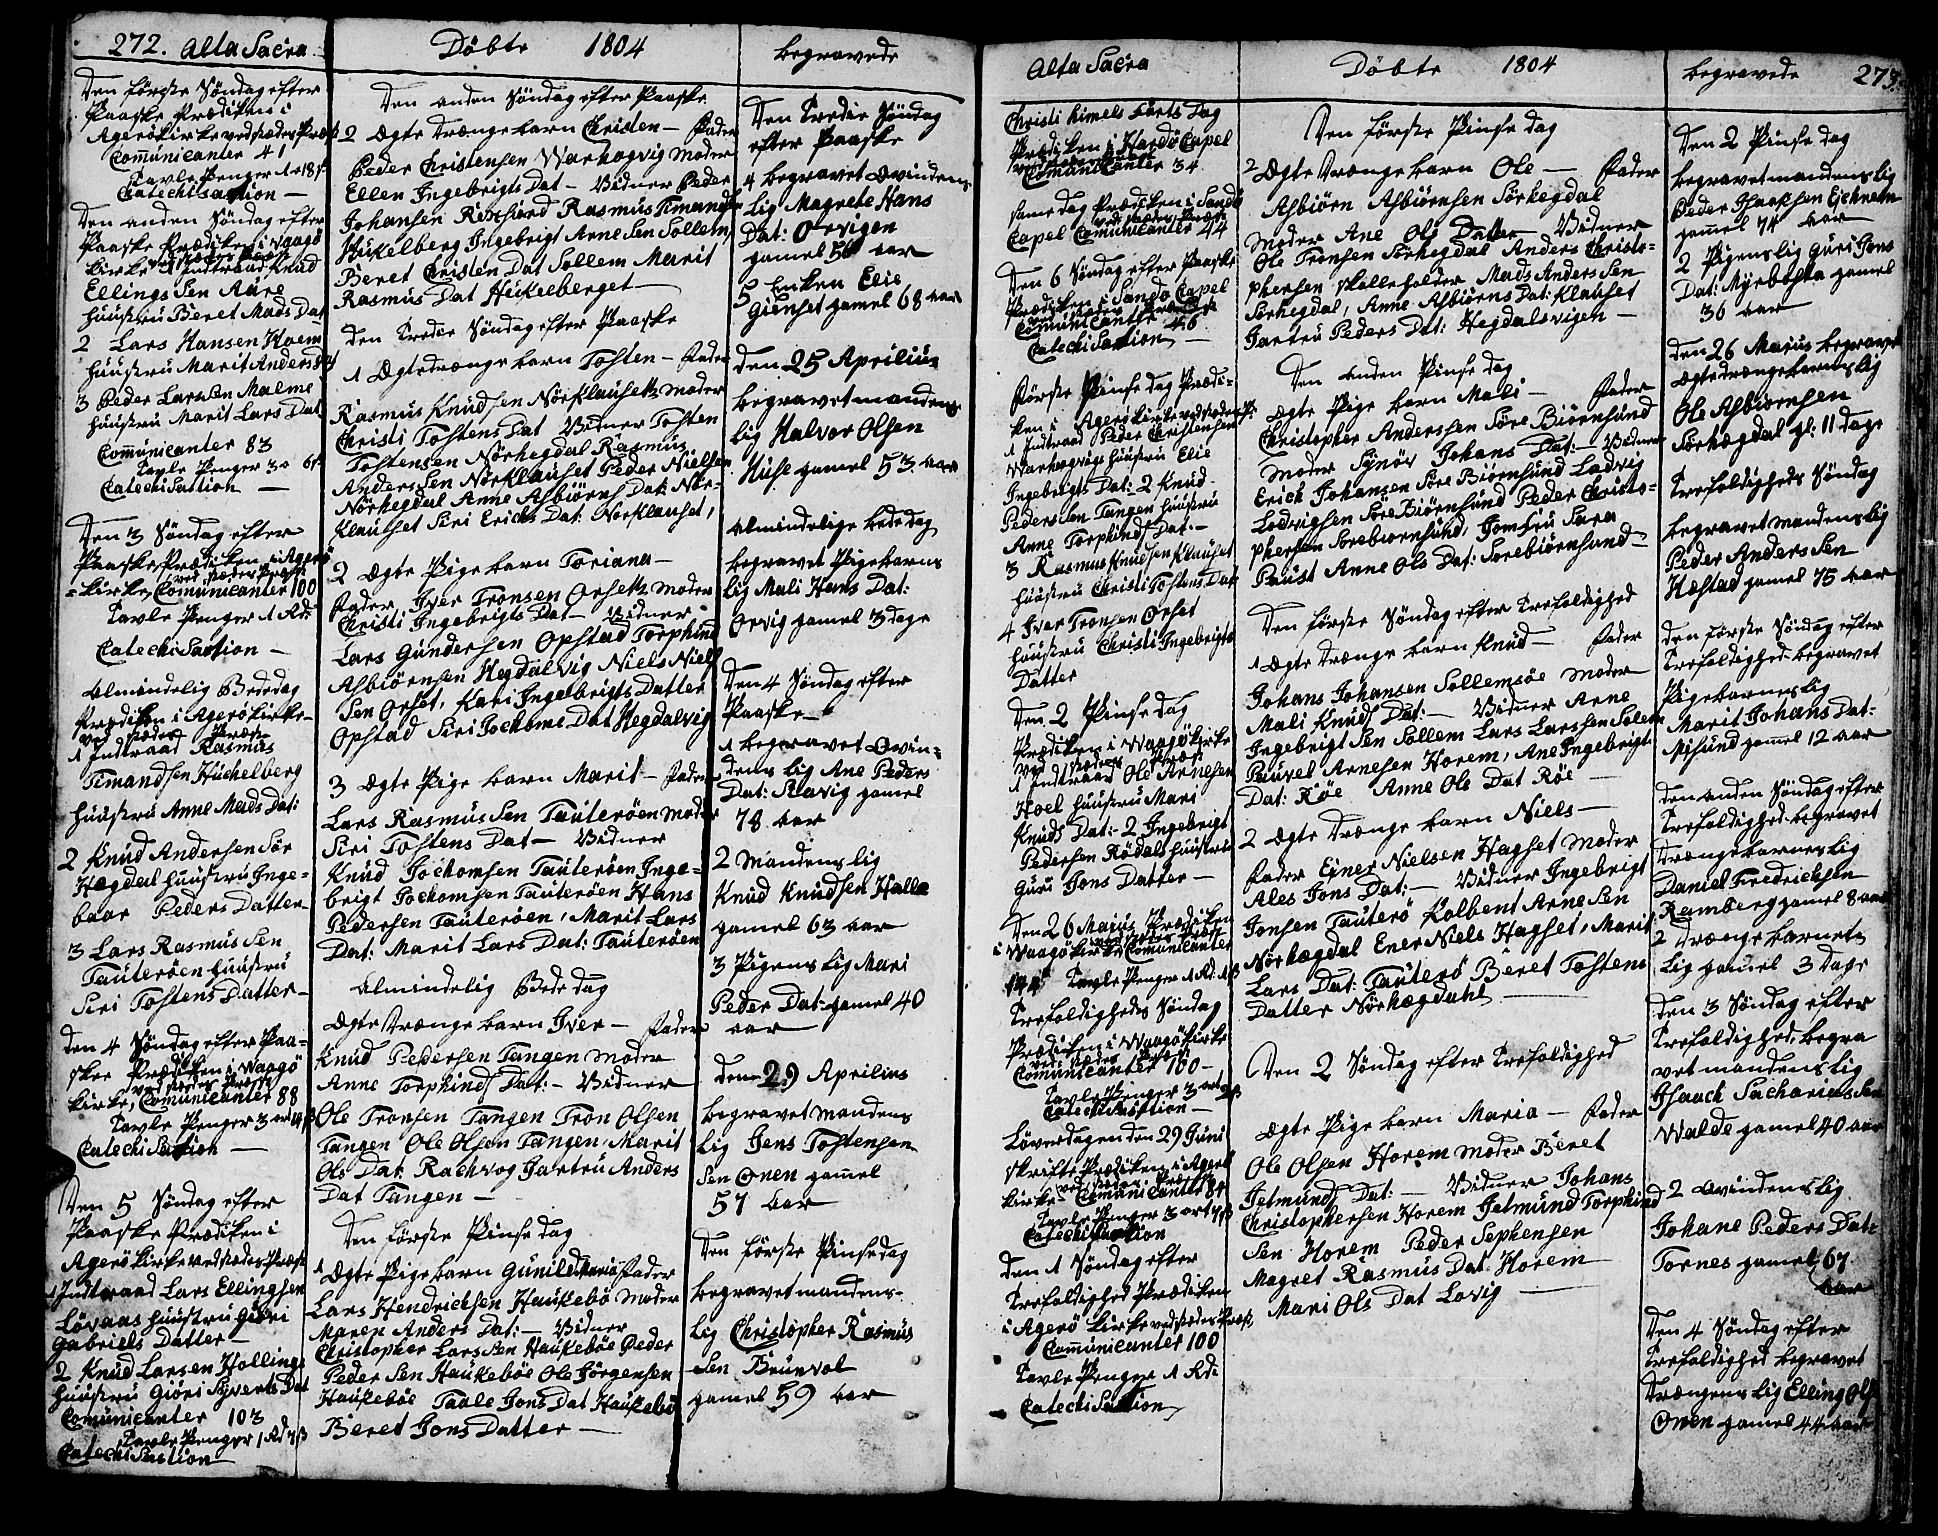 272. Alta Sacra
Den første Søndag efter
Paaske Prædiken i
Agerøkirke ved stædes Præst
Communicanter 41
Tavle Penger
Catechisation —
Den anden Søndag efter
Paaske Prædiken i Vaagø
kirke ved stædes Præst
Indtraad Knud
Ellings Sen Aare
huustru Beret Mads Dat
2 Lars Hansen Hoem
huustru Marit Anders
3 Peder Lars Sen Malme
huustru Marit Lars Dat
Communicanter 83
Tavle Penger
Catechisation —
Den 3 Søndag efter
Paaske Prædiken i Agerø
ved stædes Præst
kirke, Communicanter 100
Tavle Penger 1 Rd:
Catechisation —
Almindelig Bededag
Prædiken i Agerøkirke
ved stædes Præst
1 Indtraad Rasmus
Timandsen Huchelberg
huustru Anne Mads Dat:
2 Knud Andersen Sør
Hægdal huustru Inge-
baar Peders Datter
3 Lars Rasmus Sen
Tauterøen huustru
Siri Tostens Datter
den 4 Søndag efter Paa-
ske Prædiken i Waagø
ved stædes Præst
kirke, Communicanter 88
Tavle Penger 3 ort
Catechisation —
Den 5 Søndag efter
Paaske Prædiken i
Agerøkirke ved stædes Præst
1 Indtraad Lars Ellingsen
Løvaas huustru Giøri
Gabriels Datter —
2 Knud Larsen Hollings
huustru Giøri Syverts Dat
Communicanter 103
Tavle Penger 1 Rd
Catechisation
Døbte 1804
Den anden Søndag efter Paaske
2 Ægte drænge barn Christen — Fader
Peder Christensen Warhogvig Moder
Ellen Ingebrigts Dat — Vidner Peder
Johansen Rinhard Rasmus Timandsen
Hukelberg Ingebrigt Arne Sen Sollem
Beret Christen Dat Sollem Marit
Rasmus Dat Hukelberget —
den Tredie Søndag efter Paaske
1 Ægte drænge barn Tosten — Fader
Rasmus Knudsen Nørklauset Moder
Christi Tostens Dat Vidner Tosten
Tostensen Nørhegdal Rasmus
Anders Sen Nørklauset Peder Nielsen
Nørhegdal Anne Asbiørns Dat: Nør-
klauset Siri Erichs Dat: Norklauset,
2 Ægte Pige barn Toriana —
Fader Iver Tronsen Orset Moder
Christi Ingebrigts Dat — Vidner
Lars Gundersen Opstad Torphind
Asbiørnsen Hegdalvig Niels Niels
Sen Orset, Kari Ingebrigts Datter
Opstad Siri Jochoms Dat Hegdalvig
3 Ægte Pige barn Marit — Fader
Lars Rasmus Sen Tauterøen Moder
Siri Tostens Dat — Vidner
Knud Jochomsen Tauterøen Inge-
brigt Jochomsen Tauterøen Hans
Pedersen Tauterøen, Marit Lars
Dat: Marit Lars Dat: Tauterøen
Almindelig Bededag
Ægte drænge barn Iver — Fader
Knud Pedersen Tangen Moder
Anne Torphinds Dat: — Vidner
Ole Tronsen Tangen Tron Olsen
Tangen Ole Olsen Tangen, Marit
Ols Dat Rachvog Gartru Anders
Dat Tangen —
Den første Pinse dag
1 Ægte Pige barn Gunild Maria Fader
Lars Hendrichsen Haukebø Moder
Maren Anders Dat: — Vidner
Christopher Lars Sen Haukebøe Peder
Peder Sen Haukebøe Ole Jørgensen
Haukebøe Taale Jons Dat Haukebø
Beret Jons Datter —
begravede
Den Tredie Søndag
efter Paaske
4 begravet Qvindens
Lig Magrete Hans
Dat: Orvigen
gamel 56 aar
5 Enken Elie
Gienset gamel 68 aar
den 25 Aprilius
begravet mandens
Lig Halvor Olsen
Huse gamel 53 aar
Almindelige bededag
begravet Pigebarns
Lig Mali Hans Dat:
Orvig gamel 3 dage
Den 4 Søndag efter
Paaske —
1 begravet Qvin-
dens lig Ane Peders
Dat: gamel
78 aar
2 Mandens lig
Knud Knudsen Halle
gamel 63 aar
3 Pigens lig Mari
Peder Dat: gamel 40
aar
den 29 Aprilius
begravet mandens
Lig Jens Tostensen
Sen Onen gamel
57 aar
Den første Pinsedag
begravet mandens
Lig Christopher Rasmus
Sen Brunvol
gamel 59 aar
Alta Sacra
Christi Himels farts Dag
Prædiken i Harøe Capel
Communicanter 34
same dag Prædiken i Sandø
Capel Communicanter 44
Den 6 Søndag efter Paaske
Prædiken i Sandø Capel
Communicanter 46
Catechisation —
Første Pinse dag Prædi-
ken i Agerø kirke ved stædes Pr:
1 Indtraad Peder Christensen
Warhogvig huustru Elie
Ingebrigts Dat: 2 Knud
Peders Sen Tangen huustru
Anne Torphinds Dat: —
3 Rasmus Knudsen Klauset
huustru Christi Tostens Dat
4 Iver Tronsen Orset
huustru Christi Ingebrigts
Datter
Den 2 Pinse dag
Prædiken i Waagøkirke
ved stædes Præst
1 Indtraad Ole Arnesen
Hoel huustru Mari
Knuds Dat: — 2 Ingebrigt
Pedersen Rødal huustru
Guru Jons Datter —
Den 26 Majus Prædiken
i Waagøkirke Communicanter
144 Tavle Penger 1 Rd:
Trefoldigheds Søndag
Prædiken i Waagøkirke
ved stædes Præst
Communicanter 100 —
Tavle Penger 3 ort
Catechisation —
Løverdagen den 29 Juni
skrifte Prædiken i Agerø
kirke Communicanter 84
Tavle Penger 3 ort
Catechisation
den 1 Søndag efter
Trefoldighed Prædiken
i Agerø kirke ved stædes Præst,
Communicanter 100
Tavle Penger 1 Rd:
Catechisation
Døbte 1804
Den første Pinse dag
2 Ægte drænge barn Ole — Fader
Asbiørn Asbiørnsen Sørhegdal
Moder Ane Ols Datter Vidner
Ole Tronsen Sørhegdal Anders Christo-
phersen Skolleholder Mads Anders Sen
Sørhegdal, Anne Asbiørns Dat: Klauset
Gartru Peders Dat: Hegdalsvigen —
Den anden Pinse dag
Ægte Pige barn Mali — Fader
Christopher Andersen Søre Biørnsund
Moder Synøv Johans Dat: — Vidner
Erich Johansen Søre Biørnsund Ladvig
Lodvigsen Søre Biørnsund Peder Christo-
phersen Sorebiornsund, Jomfru Sara
Paust Anne Ols Dat: Sorebiørnsund —
Den første Søndag efter Trefoldighed
1 Ægte drænge barn Knud — Fader
Johans Johansen Sollemsøe Moder
Mali Knuds Dat: — Vidner Arne
Ingebrigt Sen Sollem Lars Larssen Solem
Pauvel Arnesen Horem, Ane Ingebrigts
Dat: Røe Anne Ole Dat Røe —
2 Ægte drænge barn Niels —
Fader Ejner Nielsen Hagset Moder
Ales Jons Dat: — Vidner Ingebrigt
Jonsen Tauterø Kolbent Arne Sen
Nørhægdal Ener Niels Hagset, Marit
Lars Dat: Tauterø Beret Tostens
Datter Nørhægdahl —
Den 2 Søndag efter Trefoldighed
Ægte Pige barn Maria — Fader
Ole Olsen Horem Moder Beret
Jelmunds Dat: — Vidner Johans
Christophersen Horem Jelmund Torphind
Sen Horem Peder Sephensen
Magret Rasmus Dat Horem
Mari Ols Dat Lovig —
begravede 273.
Den 2 Pinse dag
begravet mandens lig
Peder Isaachsen Ejchrem
gamel 74 aar
2 Pigens lig Guri Jons
Dat: Myrbostad gamel
36 aar
den 26 Majus begravet
Ægte drænge barns lig
Ole Asbiørnsen
Sørhægdal gl: 11 Dage
Trefoldigheds Søndag
begravet mandens lig
Peder Anders Sen
Hostad gamel 75 aar
den første Søndag efter
Trefoldighed begravet
Pigebarnes lig
Marit Johans Dat:
Misund gamel 12 aar
den anden Søndag efter
Trefoldighed begravet
drængebarnes lig
Daniel Fredrichsen
Ramberg gamel 8 aar
2 drænge barnets
Lig gamel 3 Dage
den 3 Søndag efter
Trefoldighed, begra
vet mandens lig
Isaach Sacharias Sen
Walde gamel 40 aar
2 Qvindens lig
Johane Peders Dat:
Tornes gamel 67
aar
Den 4 Søndag efter
Trefoldighed begravet
drængens lig Elling Ols
Onen gamel 44 aar